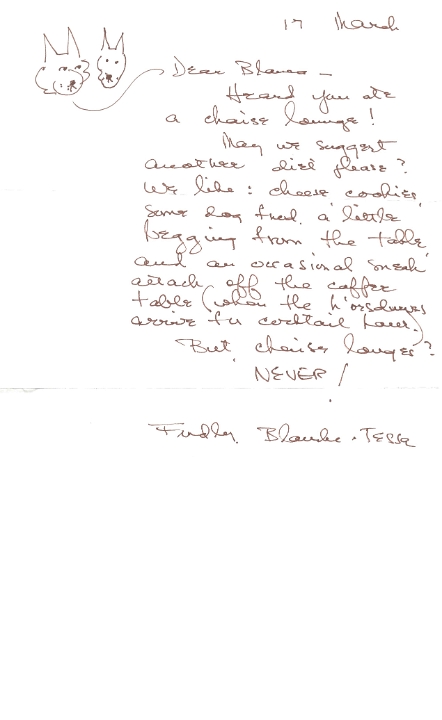 17 March
Dear Blanco —
Heard you ate
a chaise lounge!
May we suggest
another diet please?
We like: cheese, cookies,
some dog food, a little
begging from the table
and an occasional sneak
attack off the coffee
table (when the h'orsdurves
arrive for cocktail hour.)
But, chaise lounges?
NEVER!
Blanche + Tessa